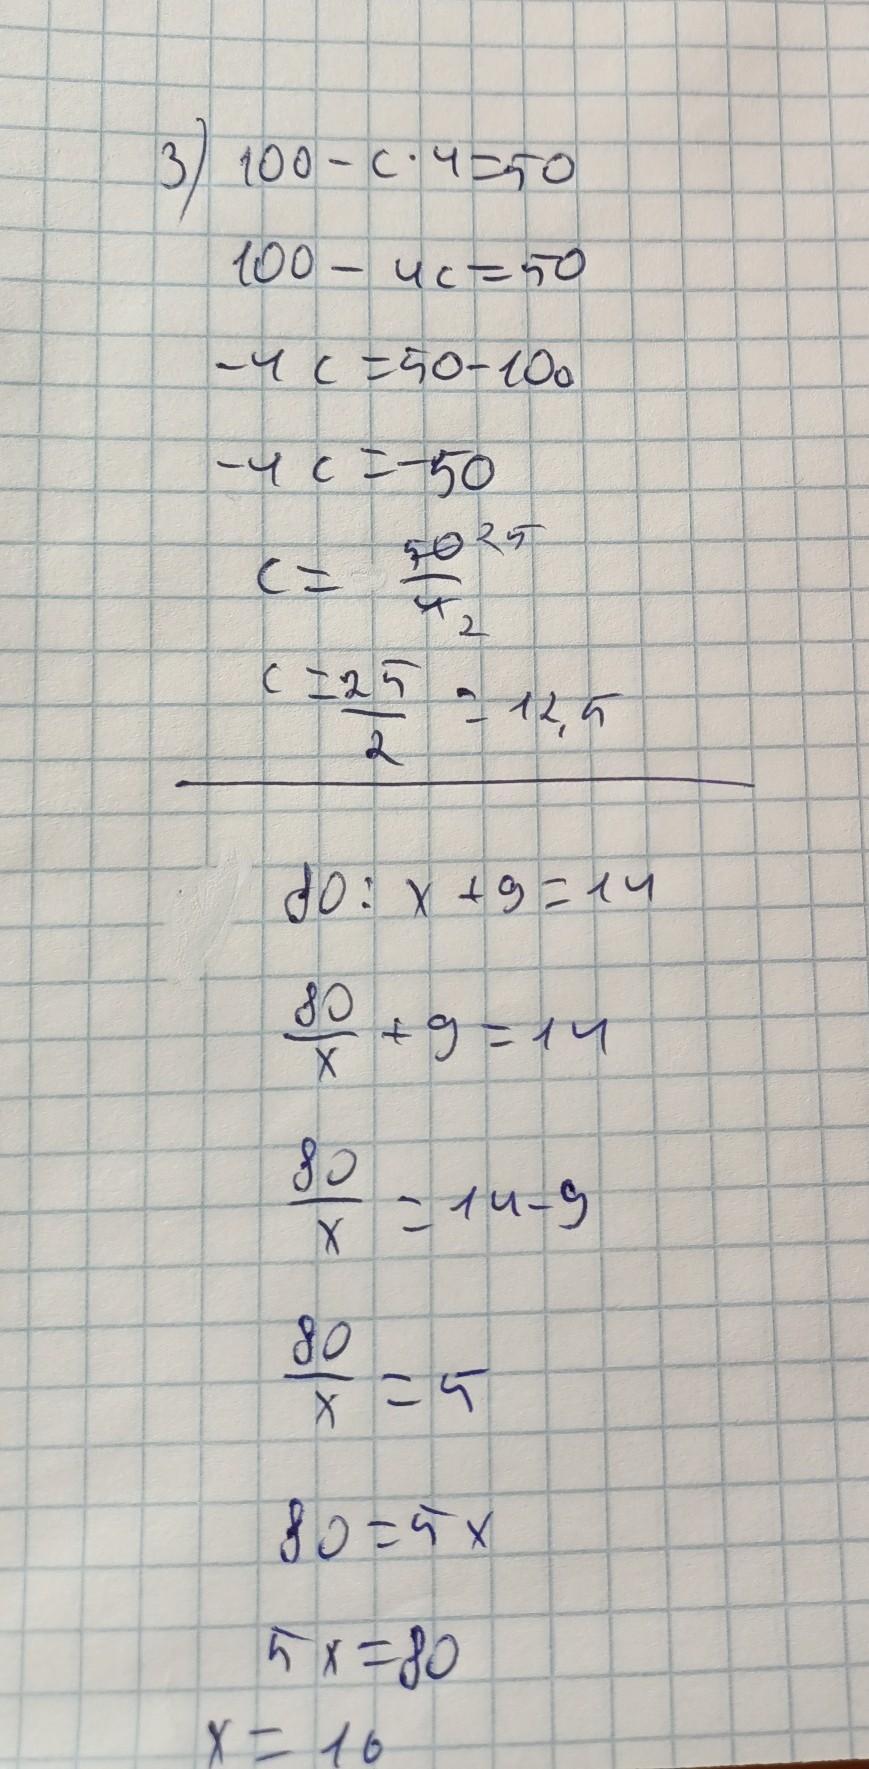 3) 100 - c · 4 = 50
100 - 4c = 50
-4c = 50 - 100
-4c = -50
c = 50 25 / 4 2
c = 25/2 = 12,5
80 : x + 9 = 14
80/x + 9 = 14
80/x = 14 - 9
80/x = 5
80 = 5x
5x = 80
x = 16